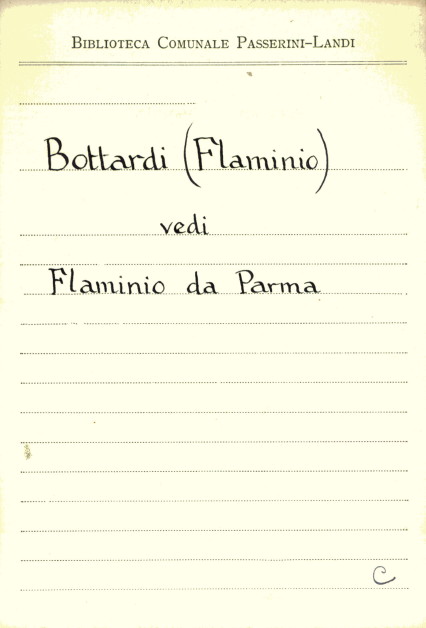 Biblioteca Comunale Passerini-Landi
Bottardi (Flaminio)
vedi
Flaminio da Parma
C